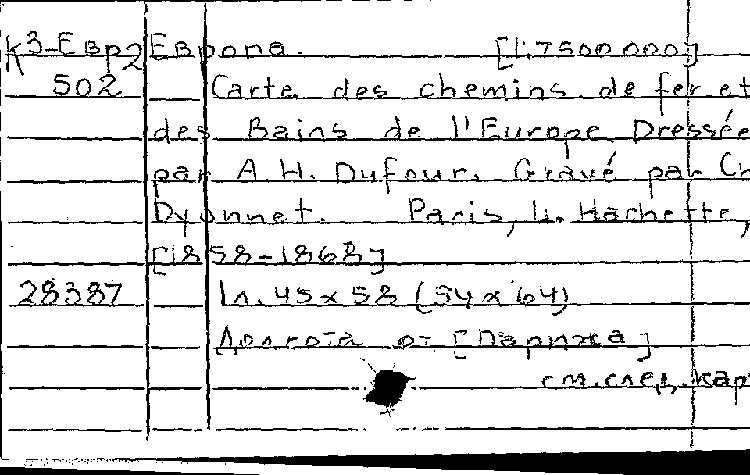 К3-Евр2 Европа. [1:7500000]
502 Carte des chemins de fer et
des Bains de l'Europe Dressée
par A. H. Dufour. Gravé par Ch
Dyonnet. Paris, L. Hachette,
[1858-1868]
28387 1л. 45x58 (54x64)
Долгота от [Парижа]
см. след. кар